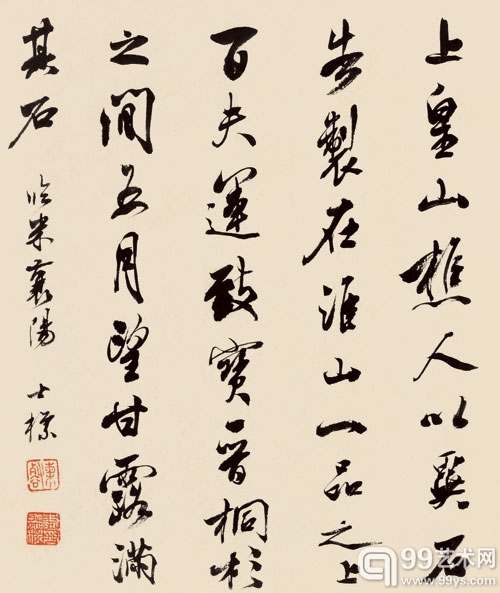 上皇山樵人以異石
告製在淮山一品之上
百夫運致寶晉桐杉
之間五月望甘露滿
其石
臨米襄陽 士標
99艺术网
www.99ys.com